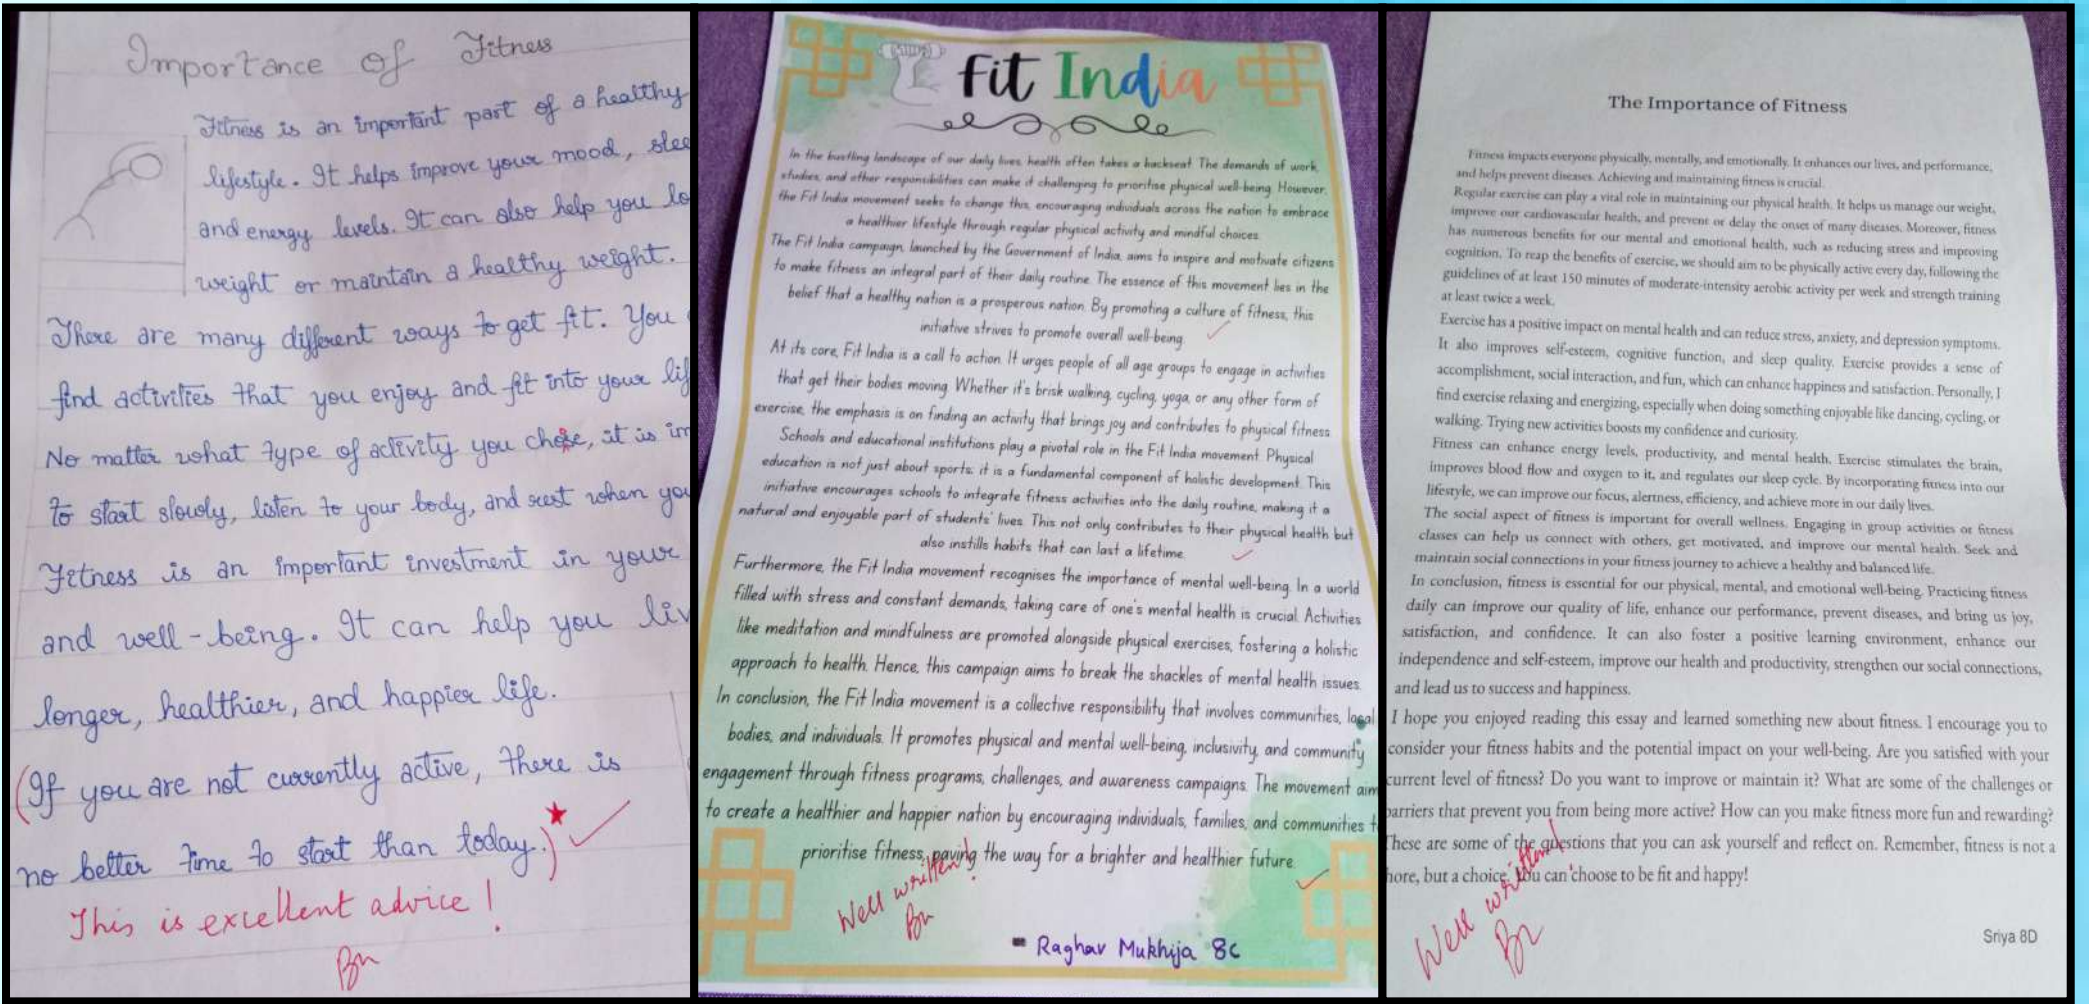 Importance of Fitness
Fitness is an important part of a healthy
lifestyle. It helps improve your mood, slee
and energy levels. It can also help you lo
weight or maintain a healthy weight.
There are many different ways to get fit. You
find activities that you enjoy and fit into your lif
No matter what type of activity you chose, it is im
to start slowly, listen to your body, and rest when you
Fitness is an important investment in your
and well-being. It can help you liv
longer, healthier, and happier life.
(If you are not currently active, there is
no better time to start than today.)
This is excellent advice!
Bn
Fit India
In the bustling landscape of our daily lives, health often takes a backseat. The demands of work,
studies, and other responsibilities can make it challenging to prioritise physical well-being. However,
the Fit India movement seeks to change this, encouraging individuals across the nation to embrace
a healthier lifestyle through regular physical activity and mindful choices.
The Fit India campaign, launched by the Government of India, aims to inspire and motivate citizens
to make fitness an integral part of their daily routine. The essence of this movement lies in the
belief that a healthy nation is a prosperous nation. By promoting a culture of fitness, this
initiative strives to promote overall well-being.
At its core, Fit India is a call to action. It urges people of all age groups to engage in activities
that get their bodies moving. Whether it's brisk walking, cycling, yoga, or any other form of
exercise, the emphasis is on finding an activity that brings joy and contributes to physical fitness.
Schools and educational institutions play a pivotal role in the Fit India movement. Physical
education is not just about sports; it is a fundamental component of holistic development. This
initiative encourages schools to integrate fitness activities into the daily routine, making it a
natural and enjoyable part of students' lives. This not only contributes to their physical health but
also instills habits that can last a lifetime.
Furthermore, the Fit India movement recognises the importance of mental well-being. In a world
filled with stress and constant demands, taking care of one's mental health is crucial. Activities
like meditation and mindfulness are promoted alongside physical exercises, fostering a holistic
approach to health. Hence, this campaign aims to break the shackles of mental health issues.
In conclusion, the Fit India movement is a collective responsibility that involves communities, local
bodies, and individuals. It promotes physical and mental well-being, inclusivity, and community
engagement through fitness programs, challenges, and awareness campaigns. The movement aim
to create a healthier and happier nation by encouraging individuals, families, and communities t
prioritise fitness, paving the way for a brighter and healthier future.
Well written!
Bn
- Raghav Mukhija 8C
The Importance of Fitness
Fitness impacts everyone physically, mentally, and emotionally. It enhances our lives, and performance,
and helps prevent diseases. Achieving and maintaining fitness is crucial.
Regular exercise can play a vital role in maintaining our physical health. It helps us manage our weight,
improve our cardiovascular health, and prevent or delay the onset of many diseases. Moreover, fitness
has numerous benefits for our mental and emotional health, such as reducing stress and improving
cognition. To reap the benefits of exercise, we should aim to be physically active every day, following the
guidelines of at least 150 minutes of moderate-intensity aerobic activity per week and strength training
at least twice a week.
Exercise has a positive impact on mental health and can reduce stress, anxiety, and depression symptoms.
It also improves self-esteem, cognitive function, and sleep quality. Exercise provides a sense of
accomplishment, social interaction, and fun, which can enhance happiness and satisfaction. Personally, I
find exercise relaxing and energizing, especially when doing something enjoyable like dancing, cycling, or
walking. Trying new activities boosts my confidence and curiosity.
Fitness can enhance energy levels, productivity, and mental health. Exercise stimulates the brain,
improves blood flow and oxygen to it, and regulates our sleep cycle. By incorporating fitness into our
lifestyle, we can improve our focus, alertness, efficiency, and achieve more in our daily lives.
The social aspect of fitness is important for overall wellness. Engaging in group activities or fitness
classes can help us connect with others, get motivated, and improve our mental health. Seek and
maintain social connections in your fitness journey to achieve a healthy and balanced life.
In conclusion, fitness is essential for our physical, mental, and emotional well-being. Practicing fitness
daily can improve our quality of life, enhance our performance, prevent diseases, and bring us joy,
satisfaction, and confidence. It can also foster a positive learning environment, enhance our
independence and self-esteem, improve our health and productivity, strengthen our social connections,
and lead us to success and happiness.
I hope you enjoyed reading this essay and learned something new about fitness. I encourage you to
consider your fitness habits and the potential impact on your well-being. Are you satisfied with your
current level of fitness? Do you want to improve or maintain it? What are some of the challenges or
barriers that prevent you from being more active? How can you make fitness more fun and rewarding?
These are some of the questions that you can ask yourself and reflect on. Remember, fitness is not a
hore, but a choice. You can choose to be fit and happy!
Well written!
Bn
Sriya 8D